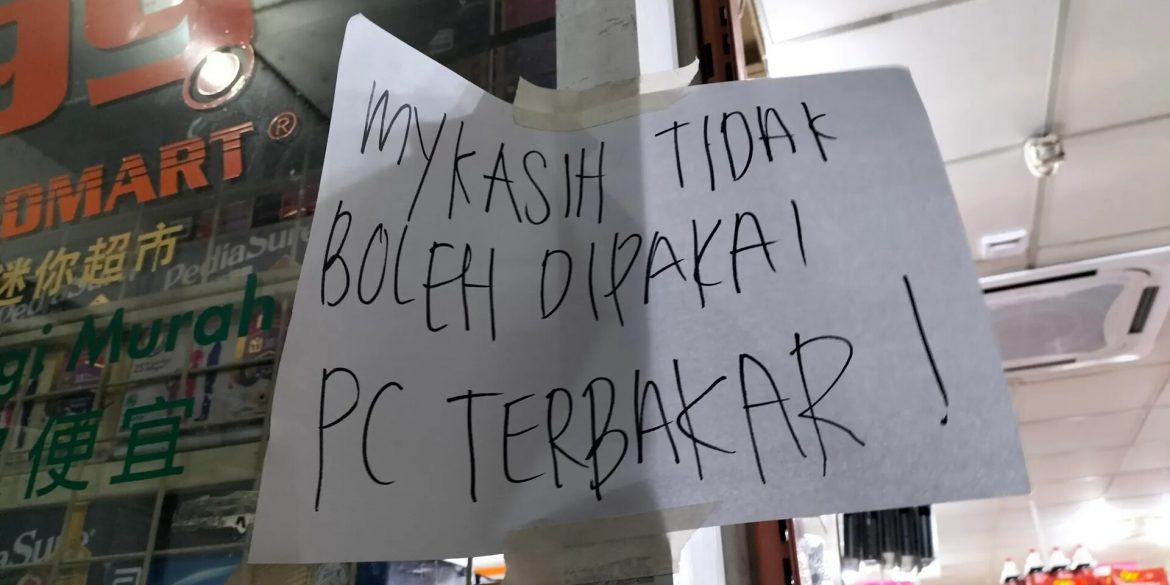 99
DMART®
迷你超市
PediaSure
gi Murah
便宜
MYKASIH TIDAK
BOLEH DIPAKAI
PC TERBAKAR!